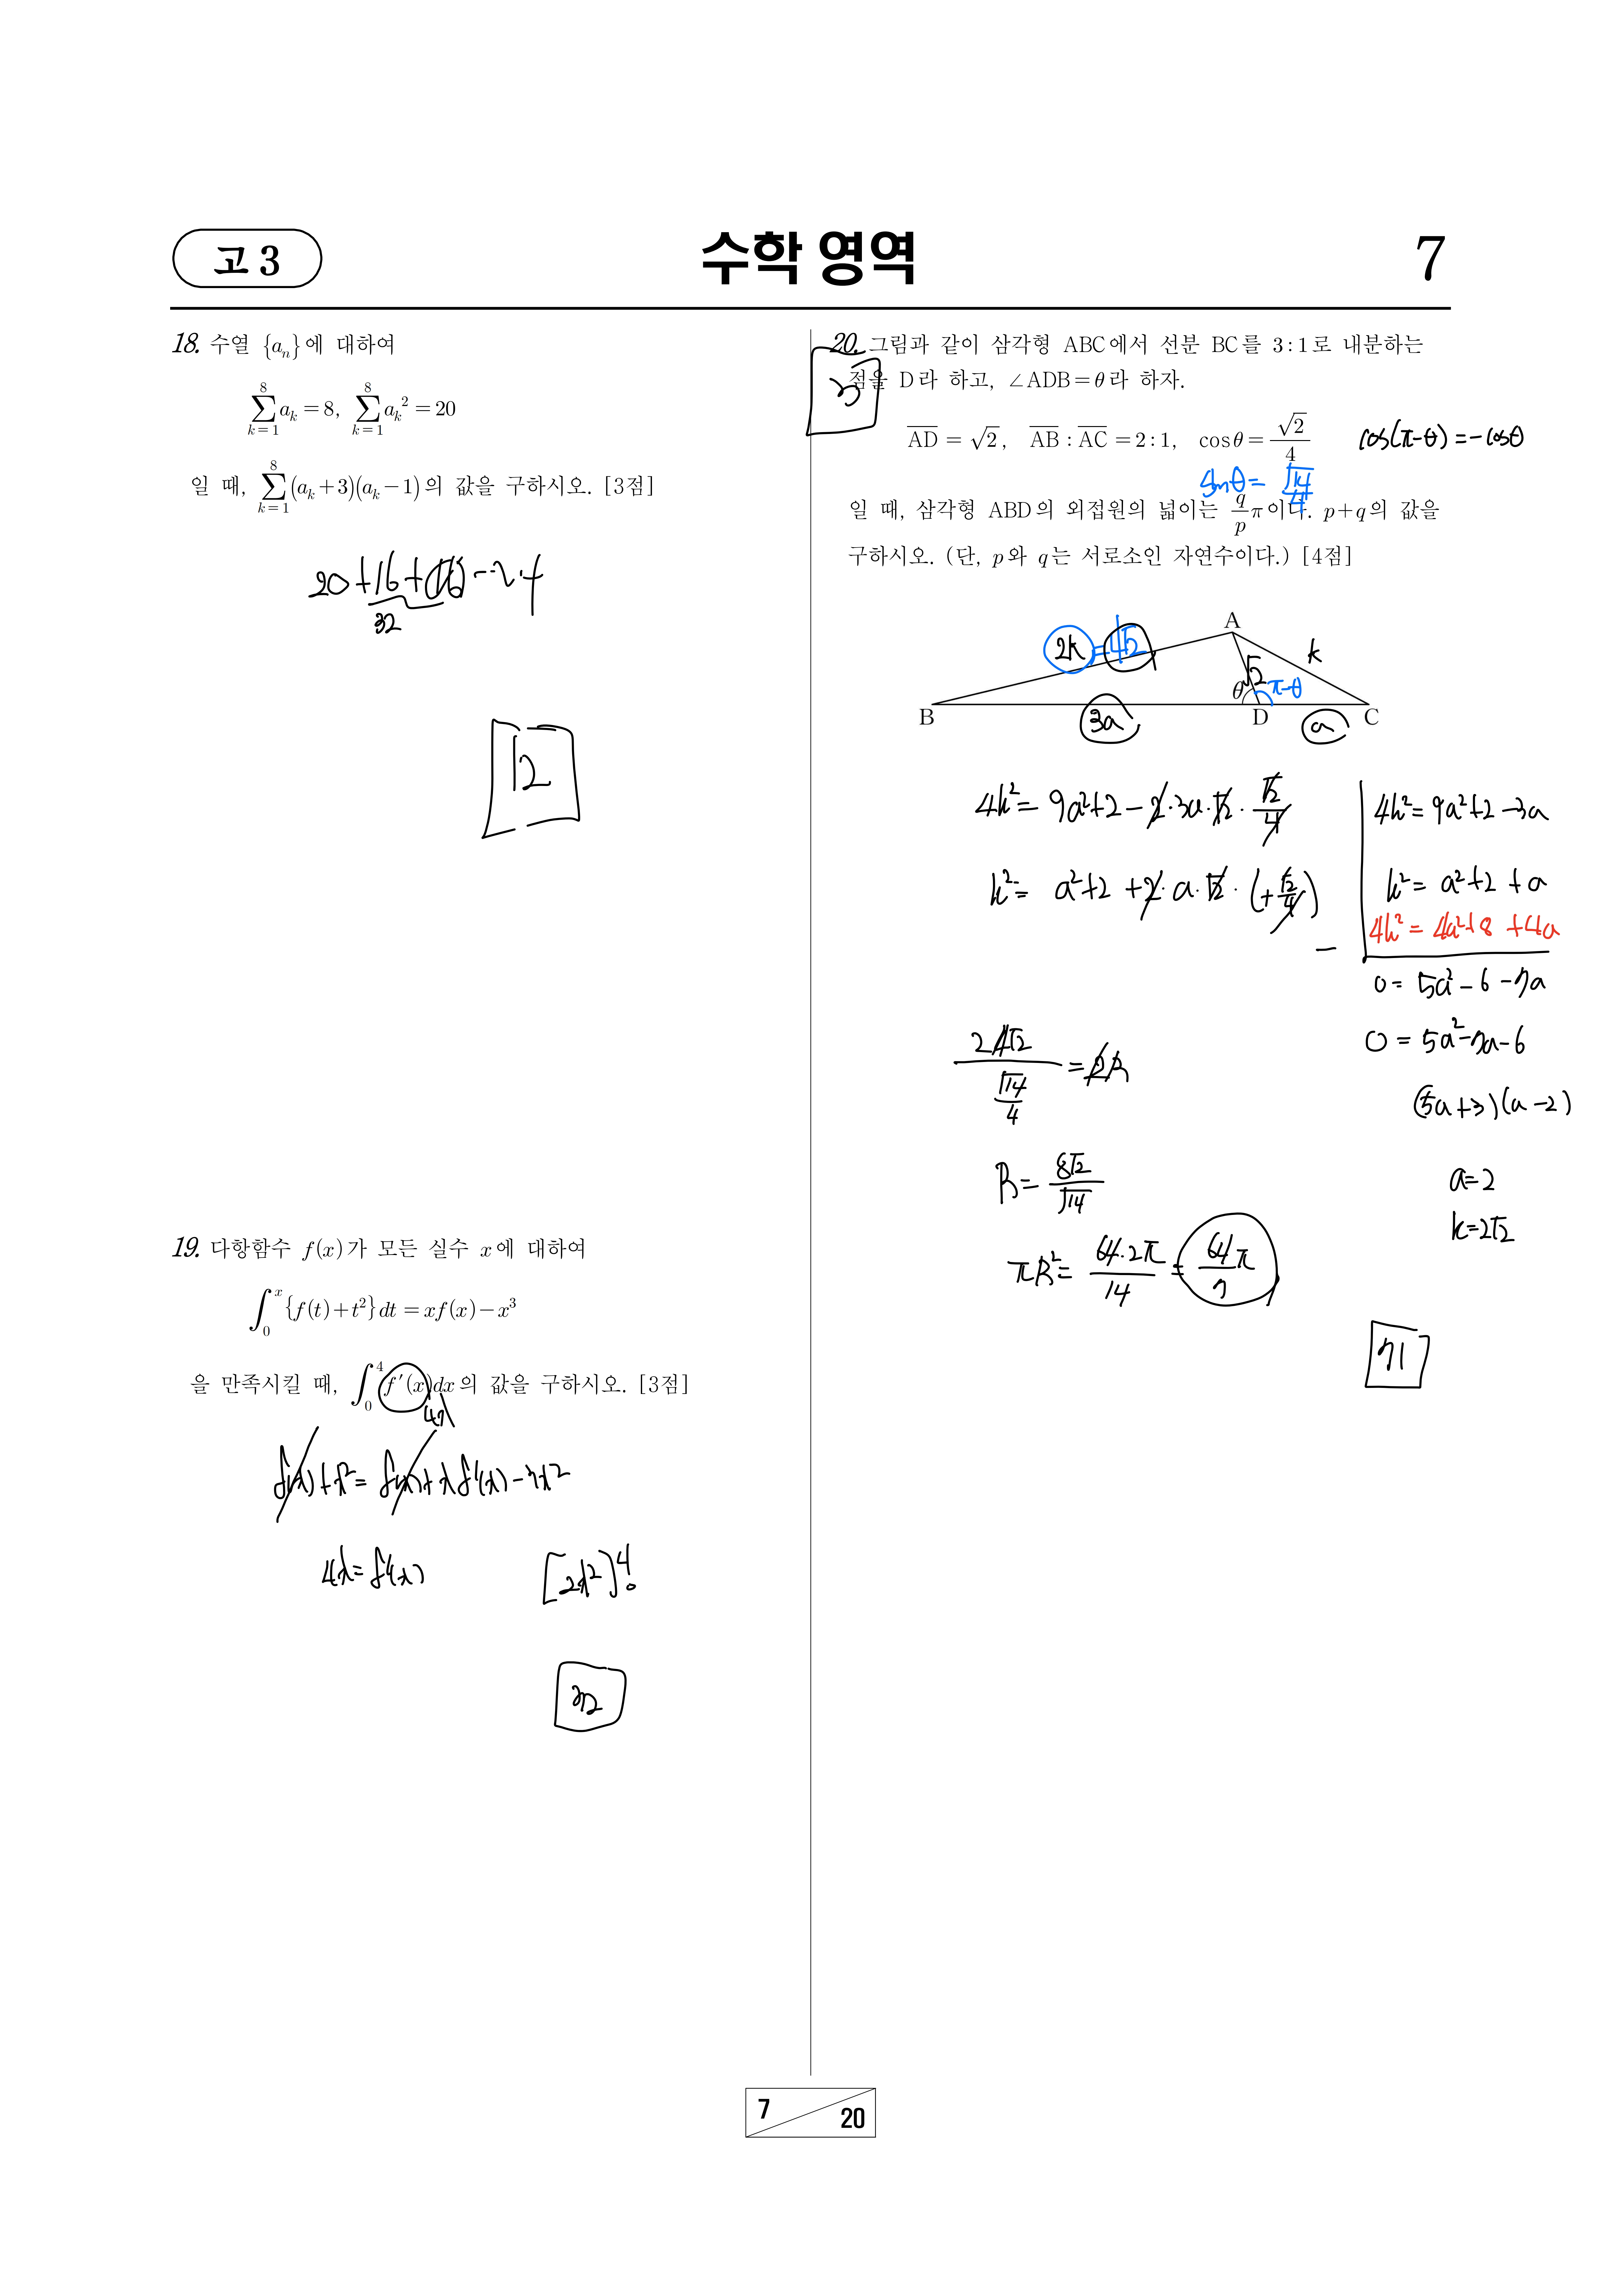 고 3
수학 영역
7
18. 수열 {aₙ}에 대하여
∑_{k=1}^{8} aₖ = 8, ∑_{k=1}^{8} aₖ² = 20
일 때, ∑_{k=1}^{8} (aₖ+3)(aₖ−1)의 값을 구하시오. [3점]
32
12
19. 다항함수 f(x)가 모든 실수 x에 대하여
∫₀ˣ {f(t)+t²}dt = xf(x)−x³
을 만족시킬 때, ∫₀⁴ f′(x)dx의 값을 구하시오. [3점]
4x
f(x)+x² = f(x)+xf′(x)−3x²
4x = f′(x)
[2x²]⁴₀
32
20. 그림과 같이 삼각형 ABC에서 선분 BC를 3 : 1로 내분하는
점을 D라 하고, ∠ADB = θ라 하자.
AD = √2, AB : AC = 2 : 1, cosθ = √2/4
cos(π−θ) = −cosθ
sinθ = √14/4
일 때, 삼각형 ABD의 외접원의 넓이는 q/p π이다. p+q의 값을
구하시오. (단, p와 q는 서로소인 자연수이다.) [4점]
A
2k = 4√2
k
√2
θ
π−θ
B
3a
D
a
C
4k² = 9a²+2−2·3a·√2·√2/4
k² = a²+2+2·a·√2·(+√2/4)
4k² = 9a²+2−3a
k² = a²+2+a
4k² = 4a²+8+4a
−
0 = 5a²−6−7a
0 = 5a²−7a−6
(5a+3)(a−2)
a=2
k=2√2
R = 8√2/√14
πR² = 64·2π/14 = 64/7 π
71
7
20